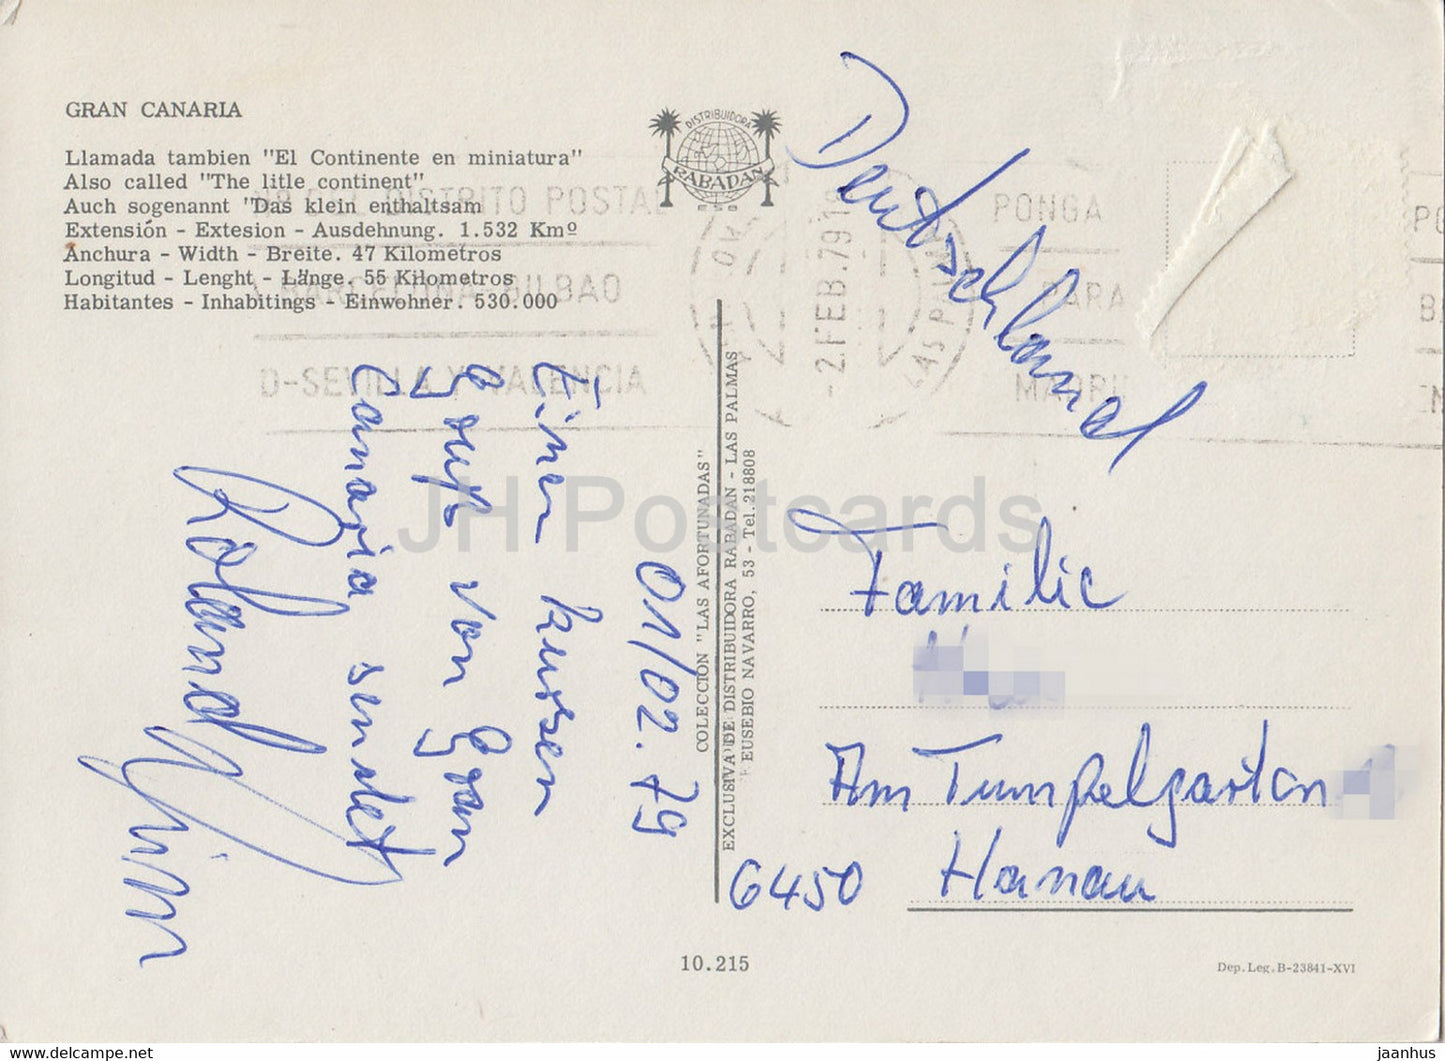 GRAN CANARIA
Llamada tambien "El Continente en miniatura"
Also called "The litle continent"
Auch sogenannt "Das klein enthaltsam
Extensión - Extesion - Ausdehnung. 1.532 Kmº
Anchura - Width - Breite. 47 Kilometros
Longitud - Lenght - Länge. 55 Kilometros
Habitantes - Inhabitings - Einwohner. 530.000
DISTRIBUIDORA
RABADAN
DISTRITO POSTAL
BARCELONA-BILBAO
D-SEVILLA Y VALENCIA
-2 FEB. 79
LAS PALMAS
PONGA
PARA
MADRI
Deutschland
01/02.79
Einen kurzen
Gruß von Gran
Canaria sendet
Roland
COLECCION "LAS AFORTUNADAS"
EXCLUSIVA DE DISTRIBUIDORA RABADAN - LAS PALMAS
EUSEBIO NAVARRO, 53 - Tel. 218808
Familie
Am Tümpelgarten
6450 Hanau
10.215
Dep. Leg. B-23841-XVI
JH Postcards
www.delcampe.net
jaanhus